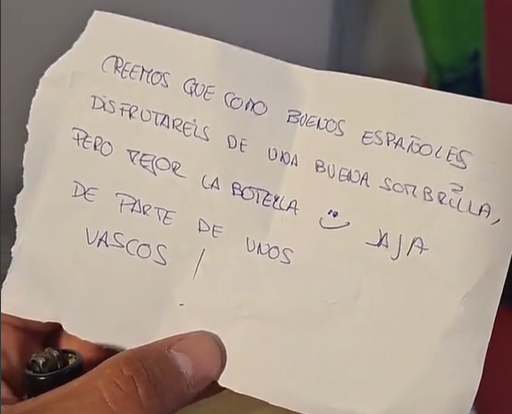 CREEMOS QUE COMO BUENOS ESPAÑOLES
DISFRUTAREIS DE UNA BUENA SOMBRILLA,
PERO MEJOR LA BOTELLA JAJA
DE PARTE DE UNOS
VASCOS /